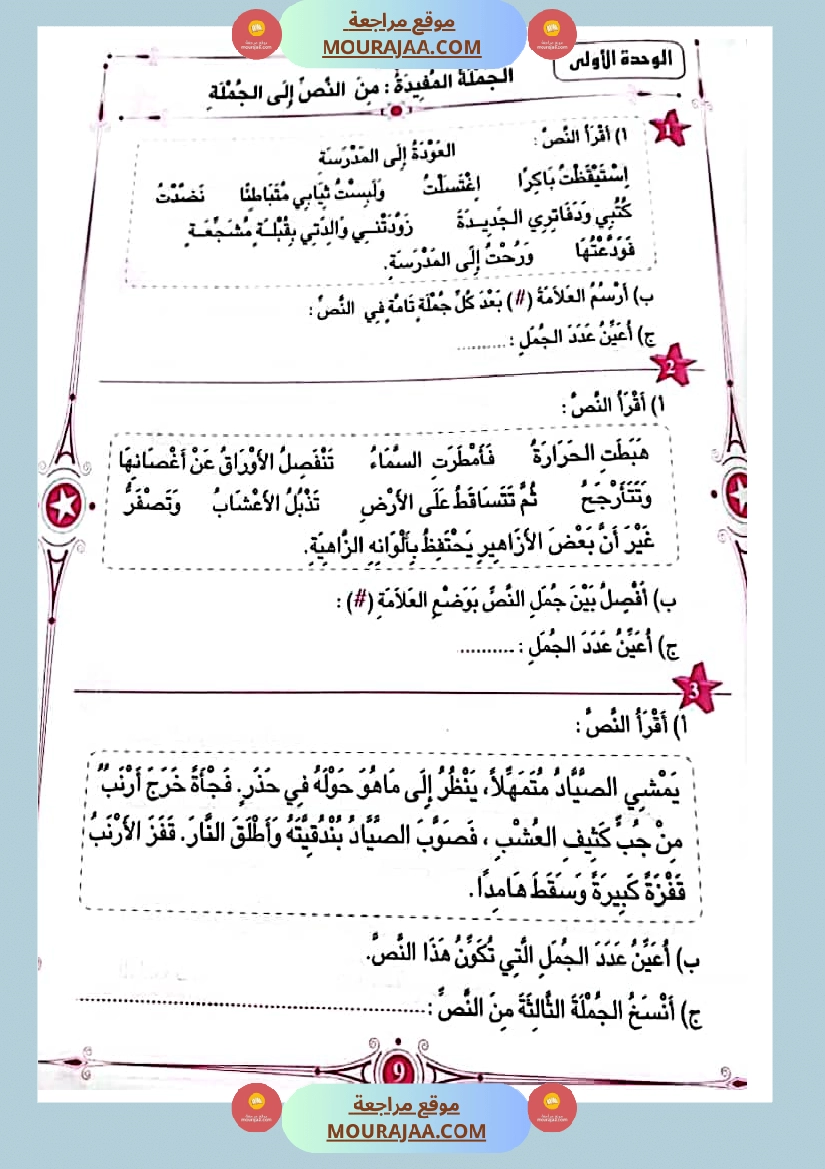 موقع مراجعة
MOURAJAA.COM
الوحدة الأولى
الجُمْلَةُ المُفِيدَةُ : مِنَ النَّصِّ إِلَى الجُمْلَةِ
1
أ) أَقْرَأُ النَّصَّ :
العَوْدَةُ إِلَى المَدْرَسَةِ
اِسْتَيْقَظْتُ بَاكِرًا اِغْتَسَلْتُ وَلَبِسْتُ ثِيَابِي مُتَبَاطِئًا نَضَّدْتُ
كُتُبِي وَدَفَاتِرِي الجَدِيدَةَ زَوَّدَتْنِي وَالِدَتِي بِقُبْلَةٍ مُشَجِّعَةٍ
فَوَدَّعْتُهَا وَرُحْتُ إِلَى المَدْرَسَةِ.
ب) أَرْسُمُ العَلاَمَةَ (#) بَعْدَ كُلِّ جُمْلَةٍ تَامَّةٍ فِي النَّصِّ :
ج) أُعَيِّنُ عَدَدَ الجُمَلِ : ..........
2
أ) أَقْرَأُ النَّصَّ :
هَبَطَتِ الحَرَارَةُ فَأَمْطَرَتِ السَّمَاءُ تَنْفَصِلُ الأَوْرَاقُ عَنْ أَغْصَانِهَا
وَتَتَأَرْجَحُ ثُمَّ تَتَسَاقَطُ عَلَى الأَرْضِ تَذْبُلُ الأَعْشَابُ وَتَصْفَرُّ
غَيْرَ أَنَّ بَعْضَ الأَزَاهِيرِ يَحْتَفِظُ بِأَلْوَانِهِ الزَّاهِيَةِ.
ب) أَفْصِلُ بَيْنَ جُمَلِ النَّصِّ بَوَضْعِ العَلاَمَةِ (#) :
ج) أُعَيِّنُ عَدَدَ الجُمَلِ : ..........
3
أ) أَقْرَأُ النَّصَّ :
يَمْشِي الصَّيَّادُ مُتَمَهِّلاً، يَنْظُرُ إِلَى مَاهُوَ حَوْلَهُ فِي حَذَرٍ. فَجْأَةً خَرَجَ أَرْنَبٌ
مِنْ جُبٍّ كَثِيفِ العُشْبِ ، فَصَوَّبَ الصَّيَّادُ بُنْدُقِيَّتَهُ وَأَطْلَقَ النَّارَ. قَفَزَ الأَرْنَبُ
قَفْزَةً كَبِيرَةً وَسَقَطَ هَامِدًا.
ب) أُعَيِّنُ عَدَدَ الجُمَلِ الَّتِي تُكَوِّنُ هَذَا النَّصَّ.
ج) أَنْسَخُ الجُمْلَةَ الثَّالِثَةَ مِنَ النَّصِّ :..........................................................
9
موقع مراجعة
MOURAJAA.COM